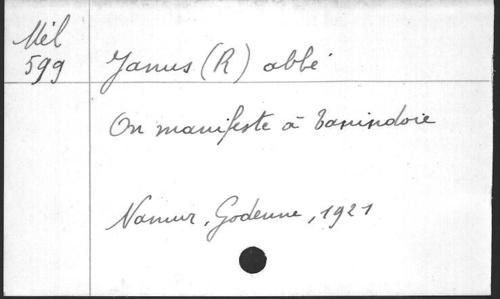 Mél
599
Janus (R) abbé
On manifeste à Tanindoie
Namur, Godenne, 1921